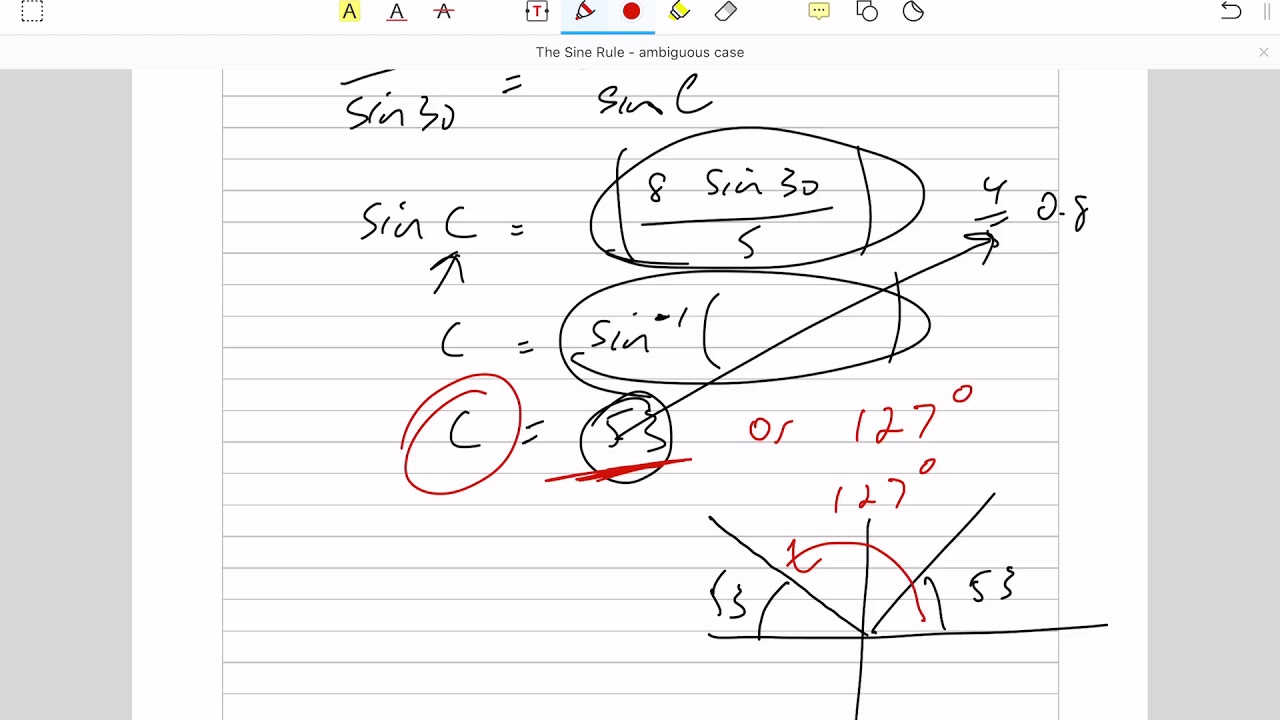 A A A T
The Sine Rule - ambiguous case ×
sin 30 = sin C
sin C = ( 8 sin 30 / 5 ) 0.8
C = sin⁻¹ ( )
C = 53 or 127°
127°
53 53